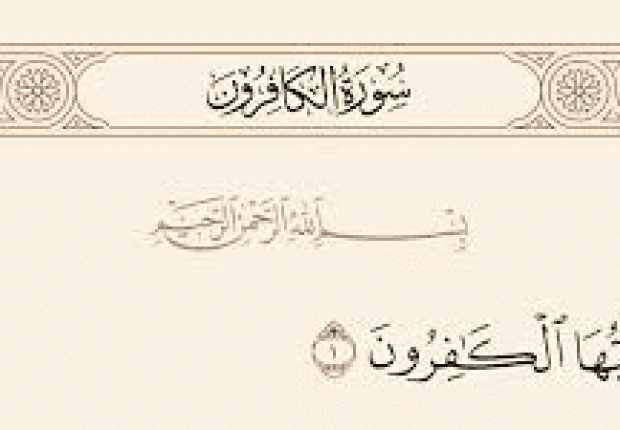 سُورَةُ الكَافِرُونَ
بِسْمِ اللَّهِ الرَّحْمَٰنِ الرَّحِيمِ
يُّهَا ٱلۡكَٰفِرُونَ ١